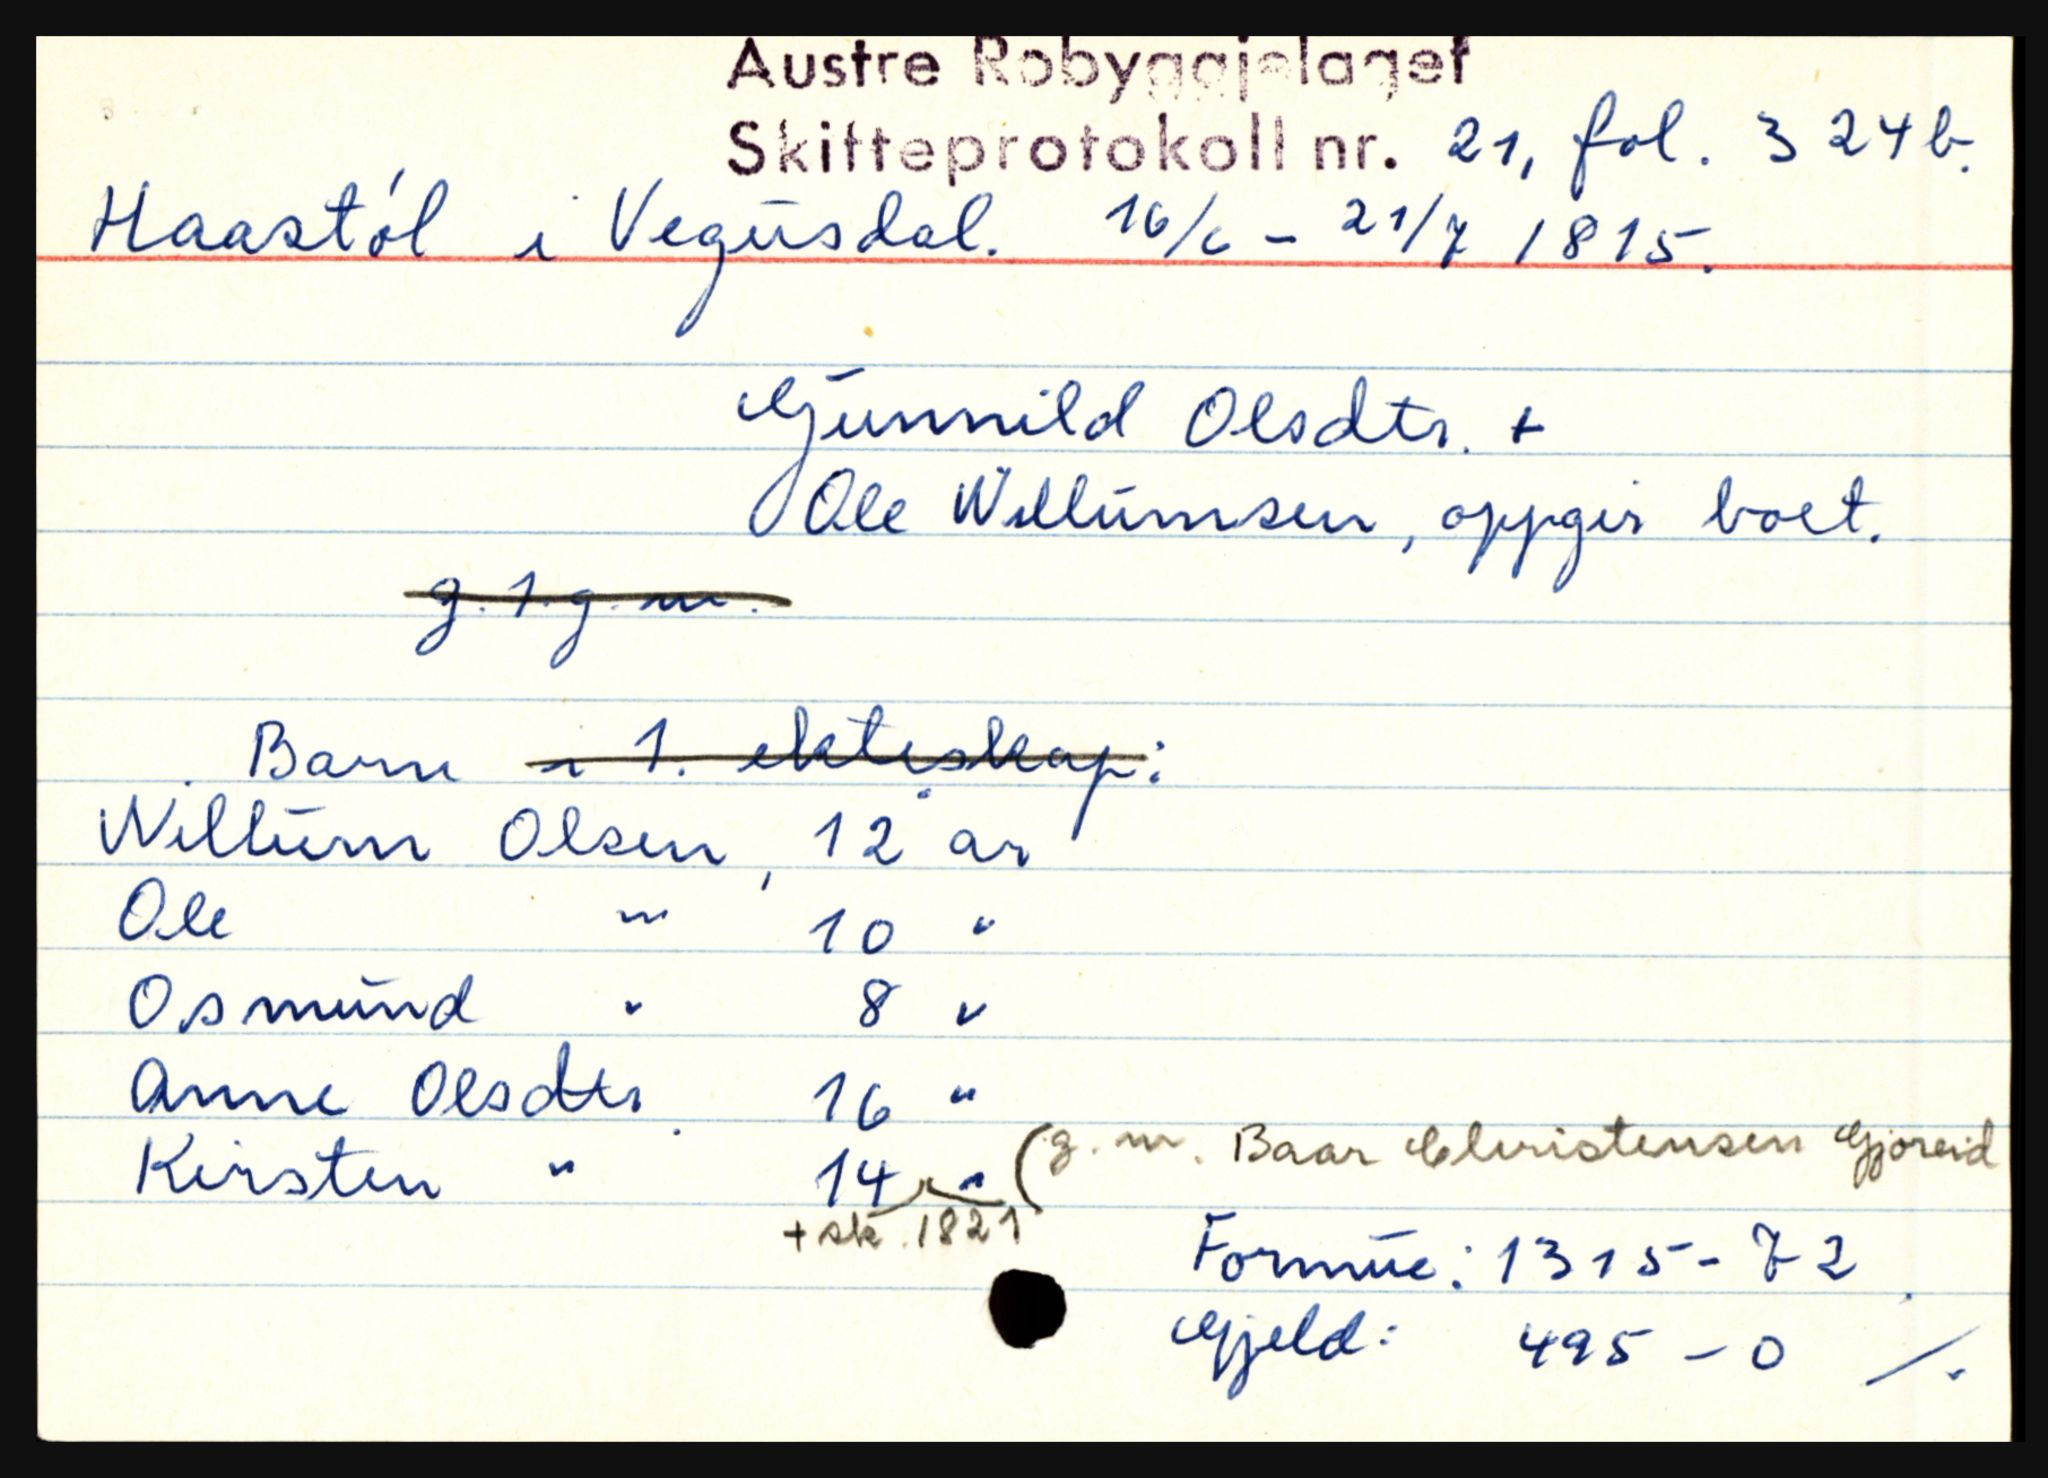 Austre Robyggjelaget
Skifteprotokoll nr. 21, fol. 324b.
Haastøl i Vegusdal. 16/6 - 21/7 1815.
Gunnild Olsdtr. +
Ole Willumsen, oppgir boet.
g. 1. g. m.
Barn i 1. ekteskap:
Willum Olsen, 12 år
Ole " 10 "
Osmund " 8 "
Anne Olsdtr. 16 "
Kirsten " 14 " (g. m. Baar Christensen Gjøreid
+ sk. 1821
Formue: 1315 - 72
Gjeld: 495 - 0 ./.